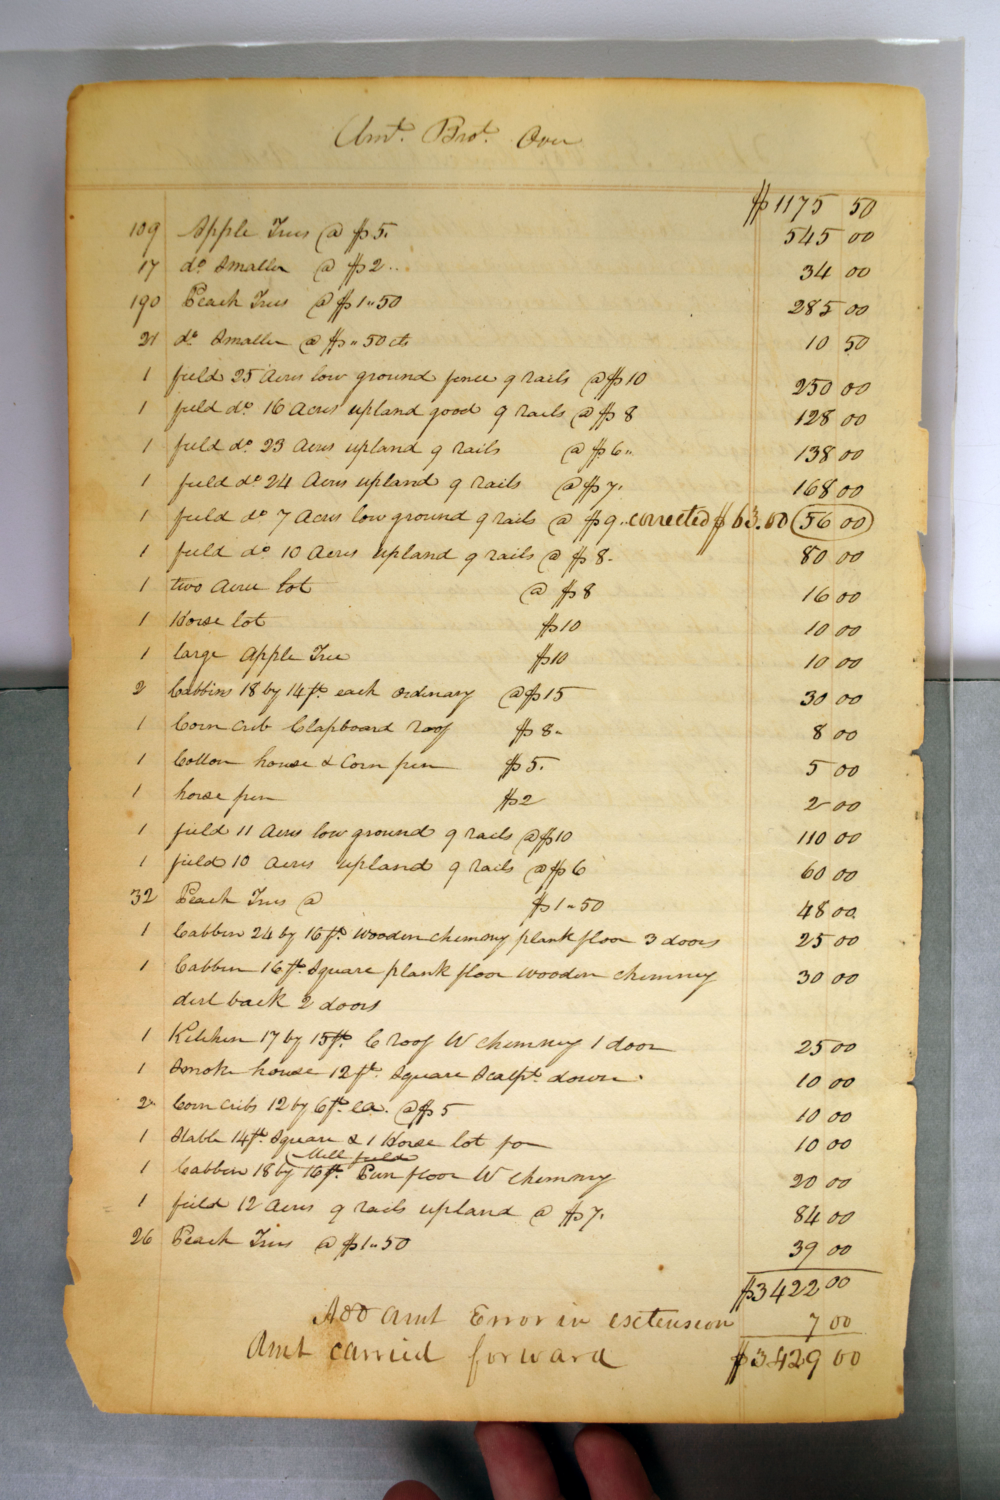 Amt. Brot. Over
$1175 50
109 Apple Trees @ $5. 545 00
17 do Smaller @ $2.. 34 00
190 Peach Trees @ $1..50 285 00
21 do Smaller @ $..50 cts 10 50
1 field 25 Acres low ground fence 9 rails @ $10 250 00
1 field do. 16 Acres upland good 9 rails @ $8 128 00
1 field do. 23 Acres upland 9 rails @ $6.. 138 00
1 field do. 24 Acres upland 9 rails @ $7. 168 00
1 field do. 7 Acres low ground 9 rails @ $9.. corrected $63.00 56 00
1 field do 10 Acres upland 9 rails @ $8. 80 00
1 two Acre lot @ $8 16 00
1 Horse lot $10 10 00
1 large Apple Tree $10 10 00
2 Cabbins 18 by 14 ft. each ordinary @ $15 30 00
1 Corn crib Clapboard roof $8. 8 00
1 Cotton house & Corn pen $5. 5 00
1 horse pen $2 2 00
1 field 11 Acres low ground 9 rails @ $10 110 00
1 field 10 Acres upland 9 rails @ $6 60 00
32 Peach Trees @ $1..50 48 00
1 Cabbin 24 by 16 ft. wooden chimney plank floor 3 doors 25 00
1 Cabbin 16 ft. Square plank floor wooden chimney 30 00
dirt back 2 doors
1 Kitchen 17 by 15 ft. C roof W chimney 1 door 25 00
1 Smoke house 12 ft. Square Scalpt. down. 10 00
2 Corn cribs 12 by 6 ft. ea. @ $5 10 00
1 Stable 14 ft. Square & 1 Horse lot for 10 00
Mill field
1 Cabbin 18 by 16 ft. Pun floor W chimney 20 00
1 field 12 Acres 9 rails upland @ $7. 84 00
26 Peach Trees @ $1..50 39 00
$3422 00
Add amt Error in extension 7 00
Amt carried forward $3429 00